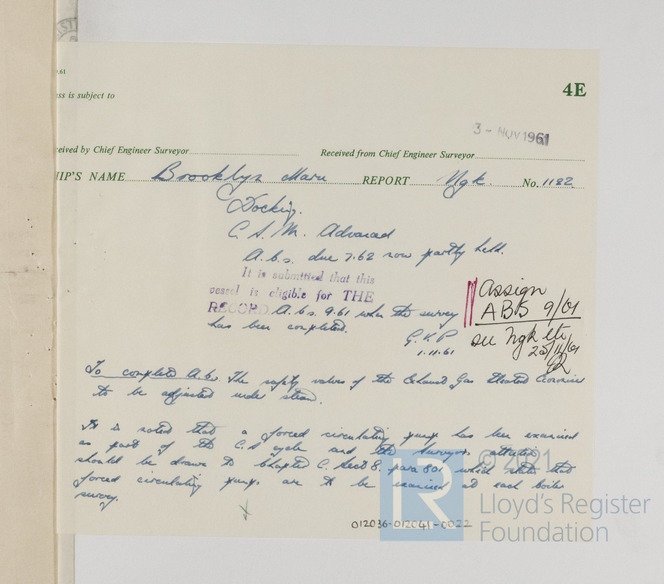 .61
ss is subject to
4E
3 - NOV 1961
ceived by Chief Engineer Surveyor
Received from Chief Engineer Surveyor
IP'S NAME Brooklyn Maru REPORT Ngk. No. 1182
Docking.
C.S.M. Advanced
A.B.S. due 7.62 now partly held.
It is submitted that this
vessel is eligible for THE
RECORD A.B.S. 9.61 when the survey
has been completed.
G.K.P
1.11.61
Assign
ABS 9/61
see Ngk ltr
25/11/61
To complete A.B.S. The safety valves of the Exhaust Gas Heated
to be adjusted under steam.
It is noted that a forced circulating pump has been examined
as part of the C.S. cycle and the Surveyors attention
should be drawn to Chapter C. Sect 8. para 801 which the
forced circulating pumps are to be examined at each boiler
survey.
012036-012041-0022
© 2021
LR
Lloyd's Register
Foundation